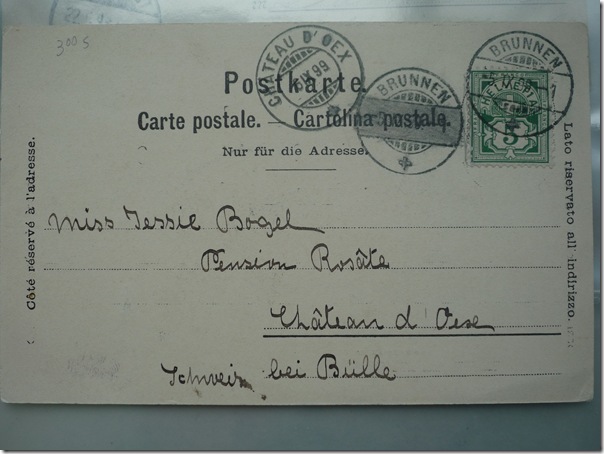 300 s
CHÂTEAU D'OEX
IX 99
BRUNNEN
BRUNNEN
HELVETIA
5
Postkarte.
Carte postale. — Cartolina postale.
Nur für die Adresse.
Côté réservé à l'adresse.
Lato riservato all' indirizzo.
Miss Jessie Bogel
Pension Rosâte
Château d'Oex
Schweiz bei Bülle